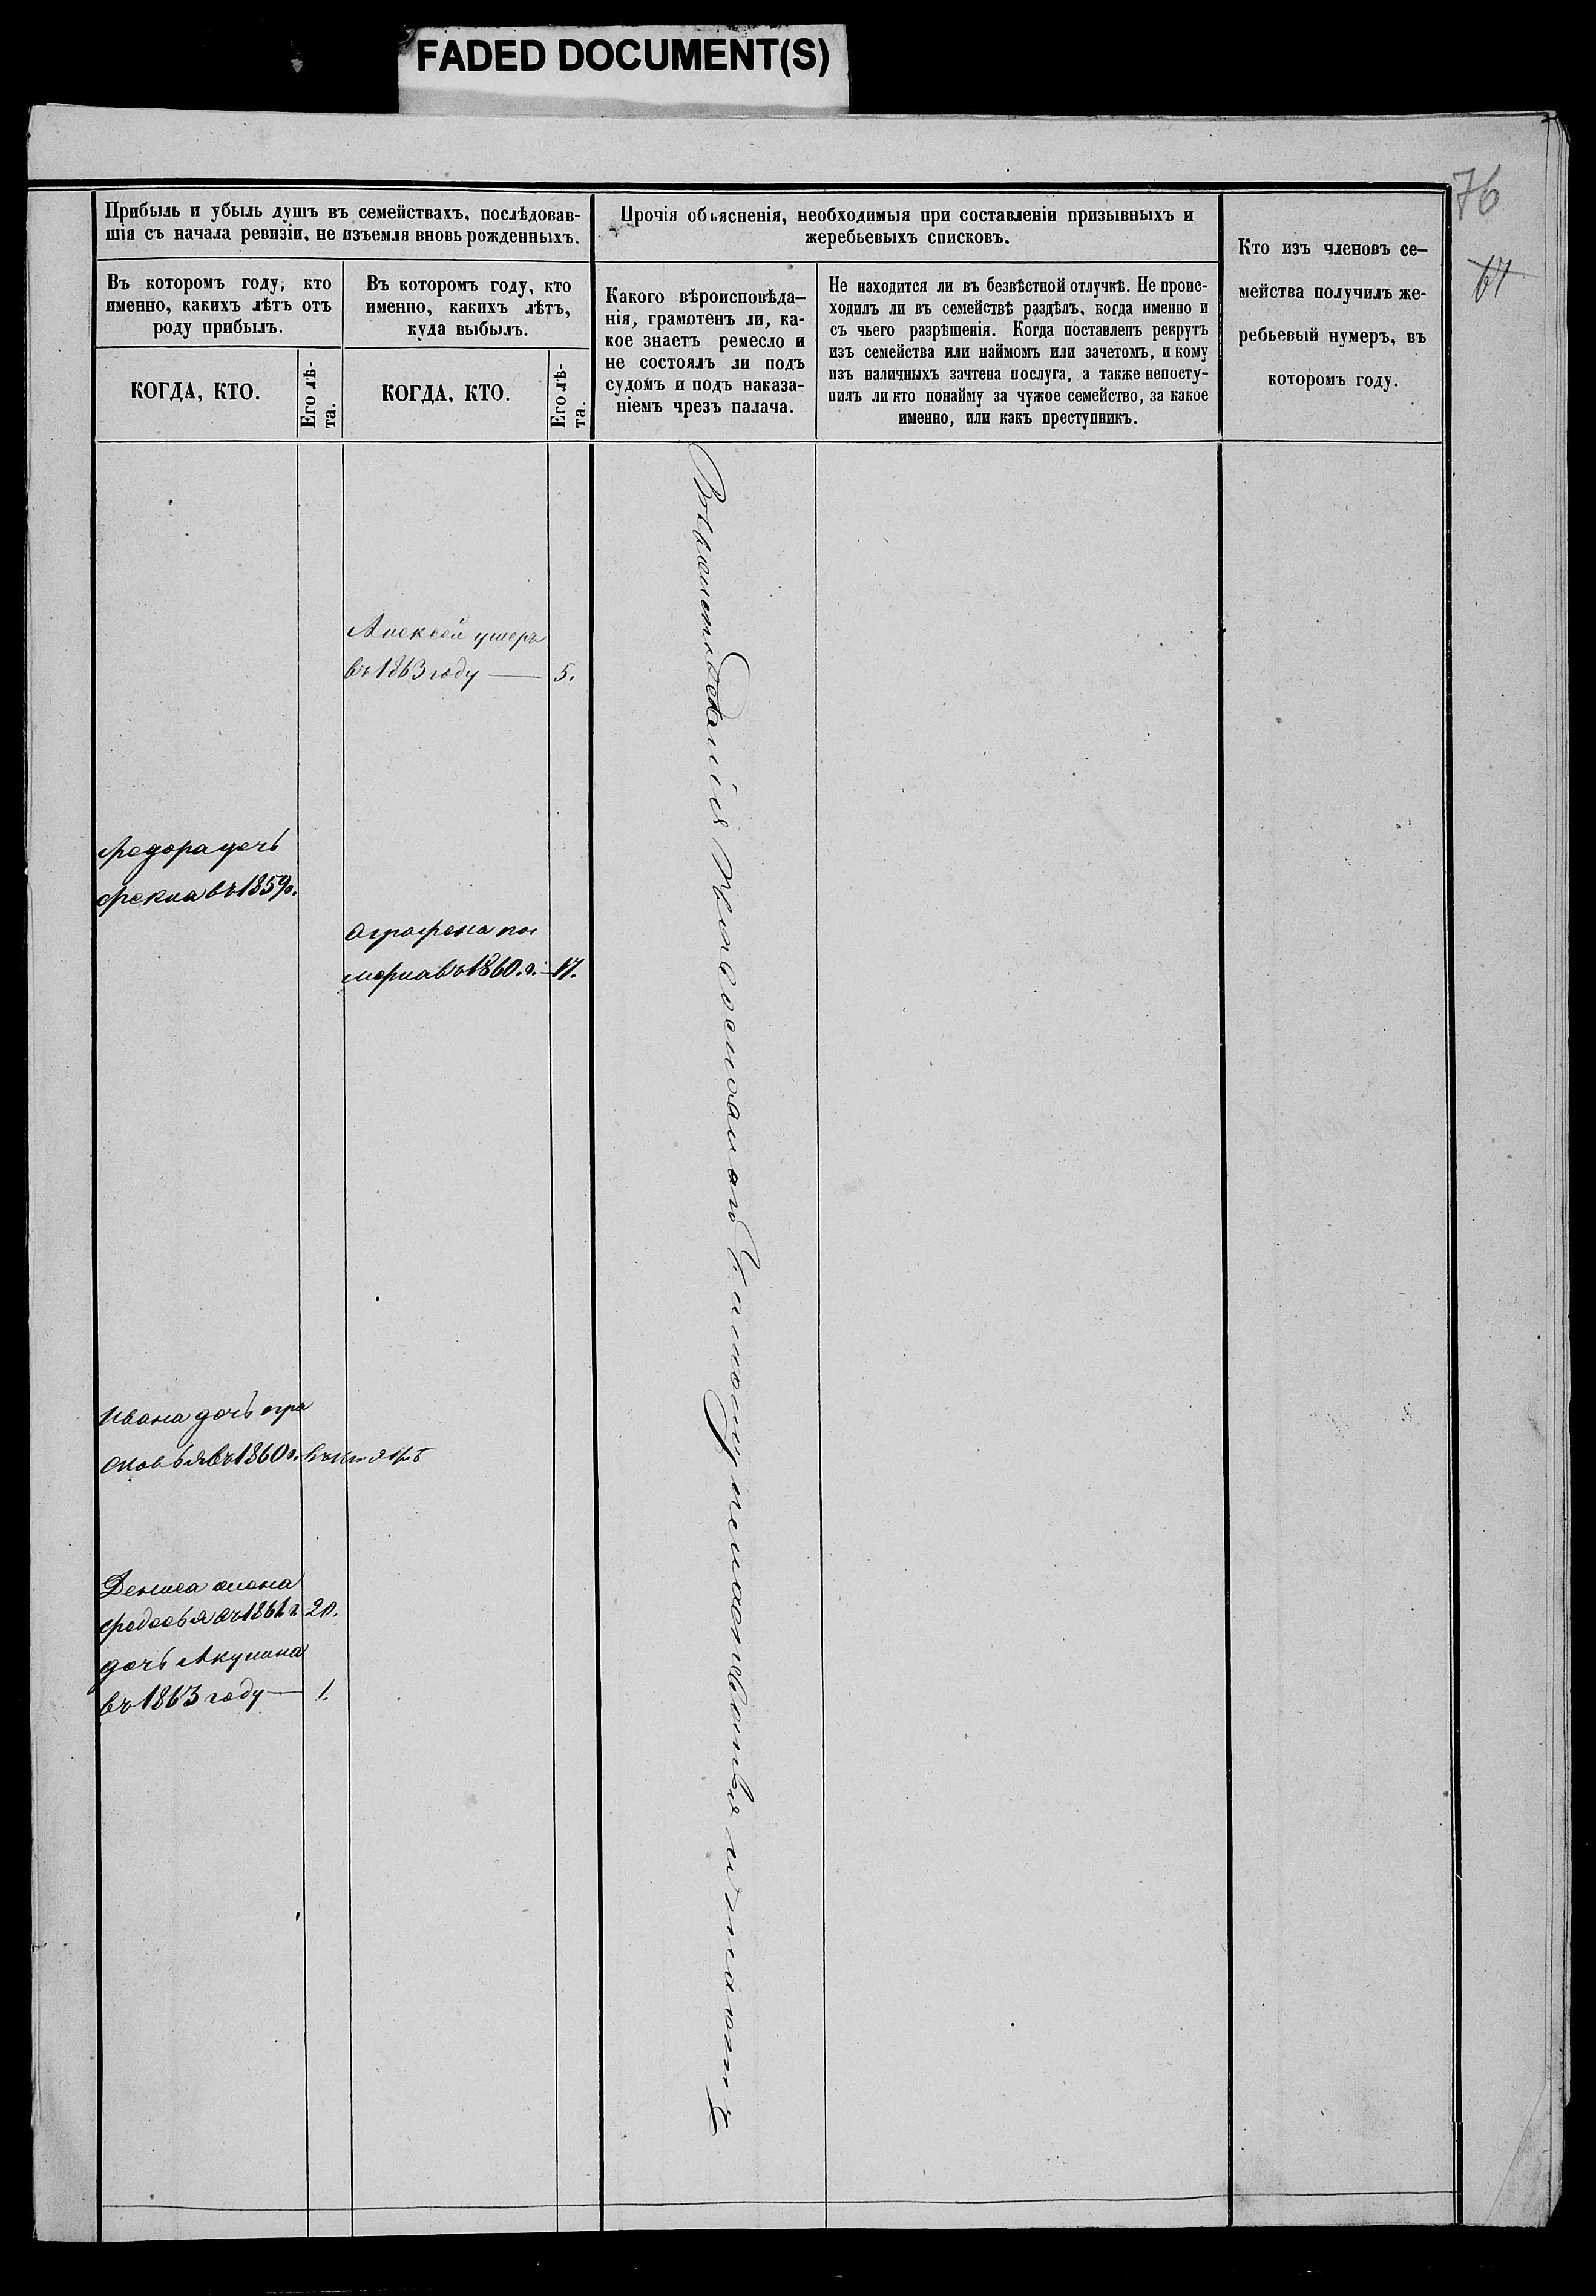 FADED DOCUMENT(S)
76
67
Прибыль и убыль душъ въ семействахъ, послѣдовав-
шія съ начала ревизіи, не изъемля вновь рожденныхъ.
Въ которомъ году, кто
именно, какихъ лѣтъ отъ
роду прибылъ.
КОГДА, КТО.
Его лѣ-
та.
Въ которомъ году, кто
именно, какихъ лѣтъ,
куда выбылъ.
КОГДА, КТО.
Его лѣ-
та.
Прочія объясненія, необходимыя при составленіи призывныхъ и
жеребьевыхъ списковъ.
Какого вѣроисповѣда-
нія, грамотенъ ли, ка-
кое знаетъ ремесло и
не состоялъ ли подъ
судомъ и подъ наказа-
ніемъ чрезъ палача.
Не находится ли въ безвѣстной отлучкѣ. Не проис-
ходилъ ли въ семействѣ раздѣлъ, когда именно и
съ чьего разрѣшенія. Когда поставленъ рекрутъ
изъ семейства или наймомъ или зачетомъ, и кому
изъ наличныхъ зачтена послуга, а также непосту-
пилъ ли кто понайму за чужое семейство, за какое
именно, или какъ преступникъ.
Кто изъ членовъ се-
мейства получилъ же-
ребьевый нумеръ, въ
которомъ году.
Алексей умеръ
въ 1863 году — 5.
Федора дочь
Фекла въ 1859г.
Аграфена по
мерла въ 1860. г. — 17.
Ивана дочь пра
сковья въ 1860 г.
Дениса жена
Федосья въ 1861 г 20.
дочь Акулина
въ 1863 году — 1.